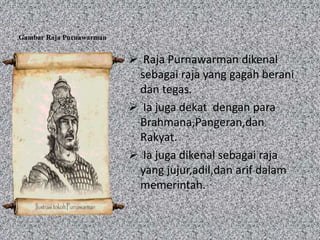 Gambar Raja Purnawarman
➢ Raja Purnawarman dikenal
sebagai raja yang gagah berani
dan tegas.
➢ Ia juga dekat dengan para
Brahmana,Pangeran,dan
Rakyat.
➢ Ia juga dikenal sebagai raja
yang jujur,adil,dan arif dalam
memerintah.
Ilustrasi tokoh Purnawarman